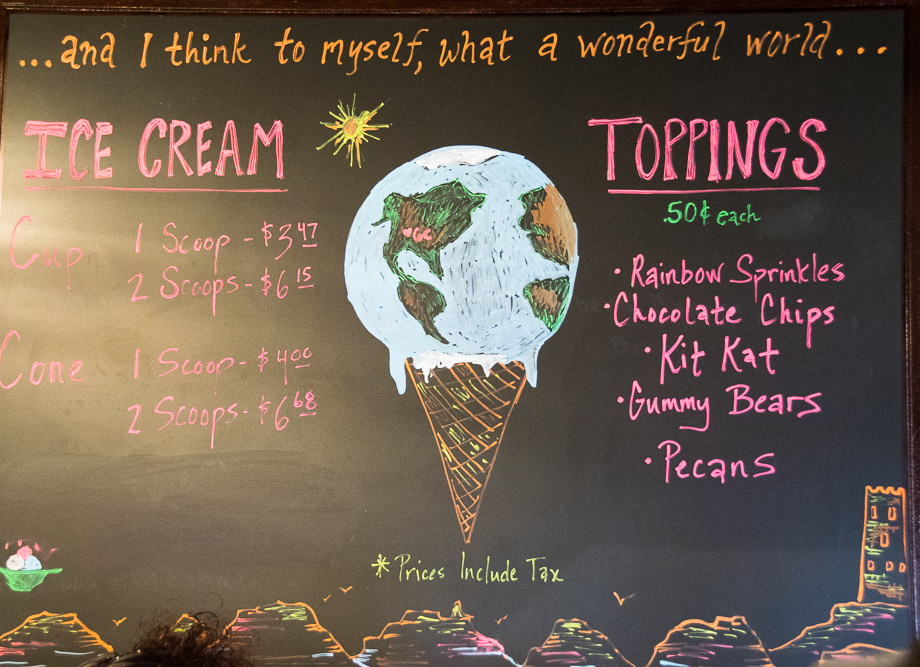 ...and I think to myself, what a wonderful world...
ICE CREAM
Cup 1 Scoop - $3 47
2 Scoops - $6 15
Cone 1 Scoop - $4 00
2 Scoops - $6 68
GC
TOPPINGS
.50¢ each
• Rainbow Sprinkles
• Chocolate Chips
• Kit Kat
• Gummy Bears
• Pecans
* Prices Include Tax